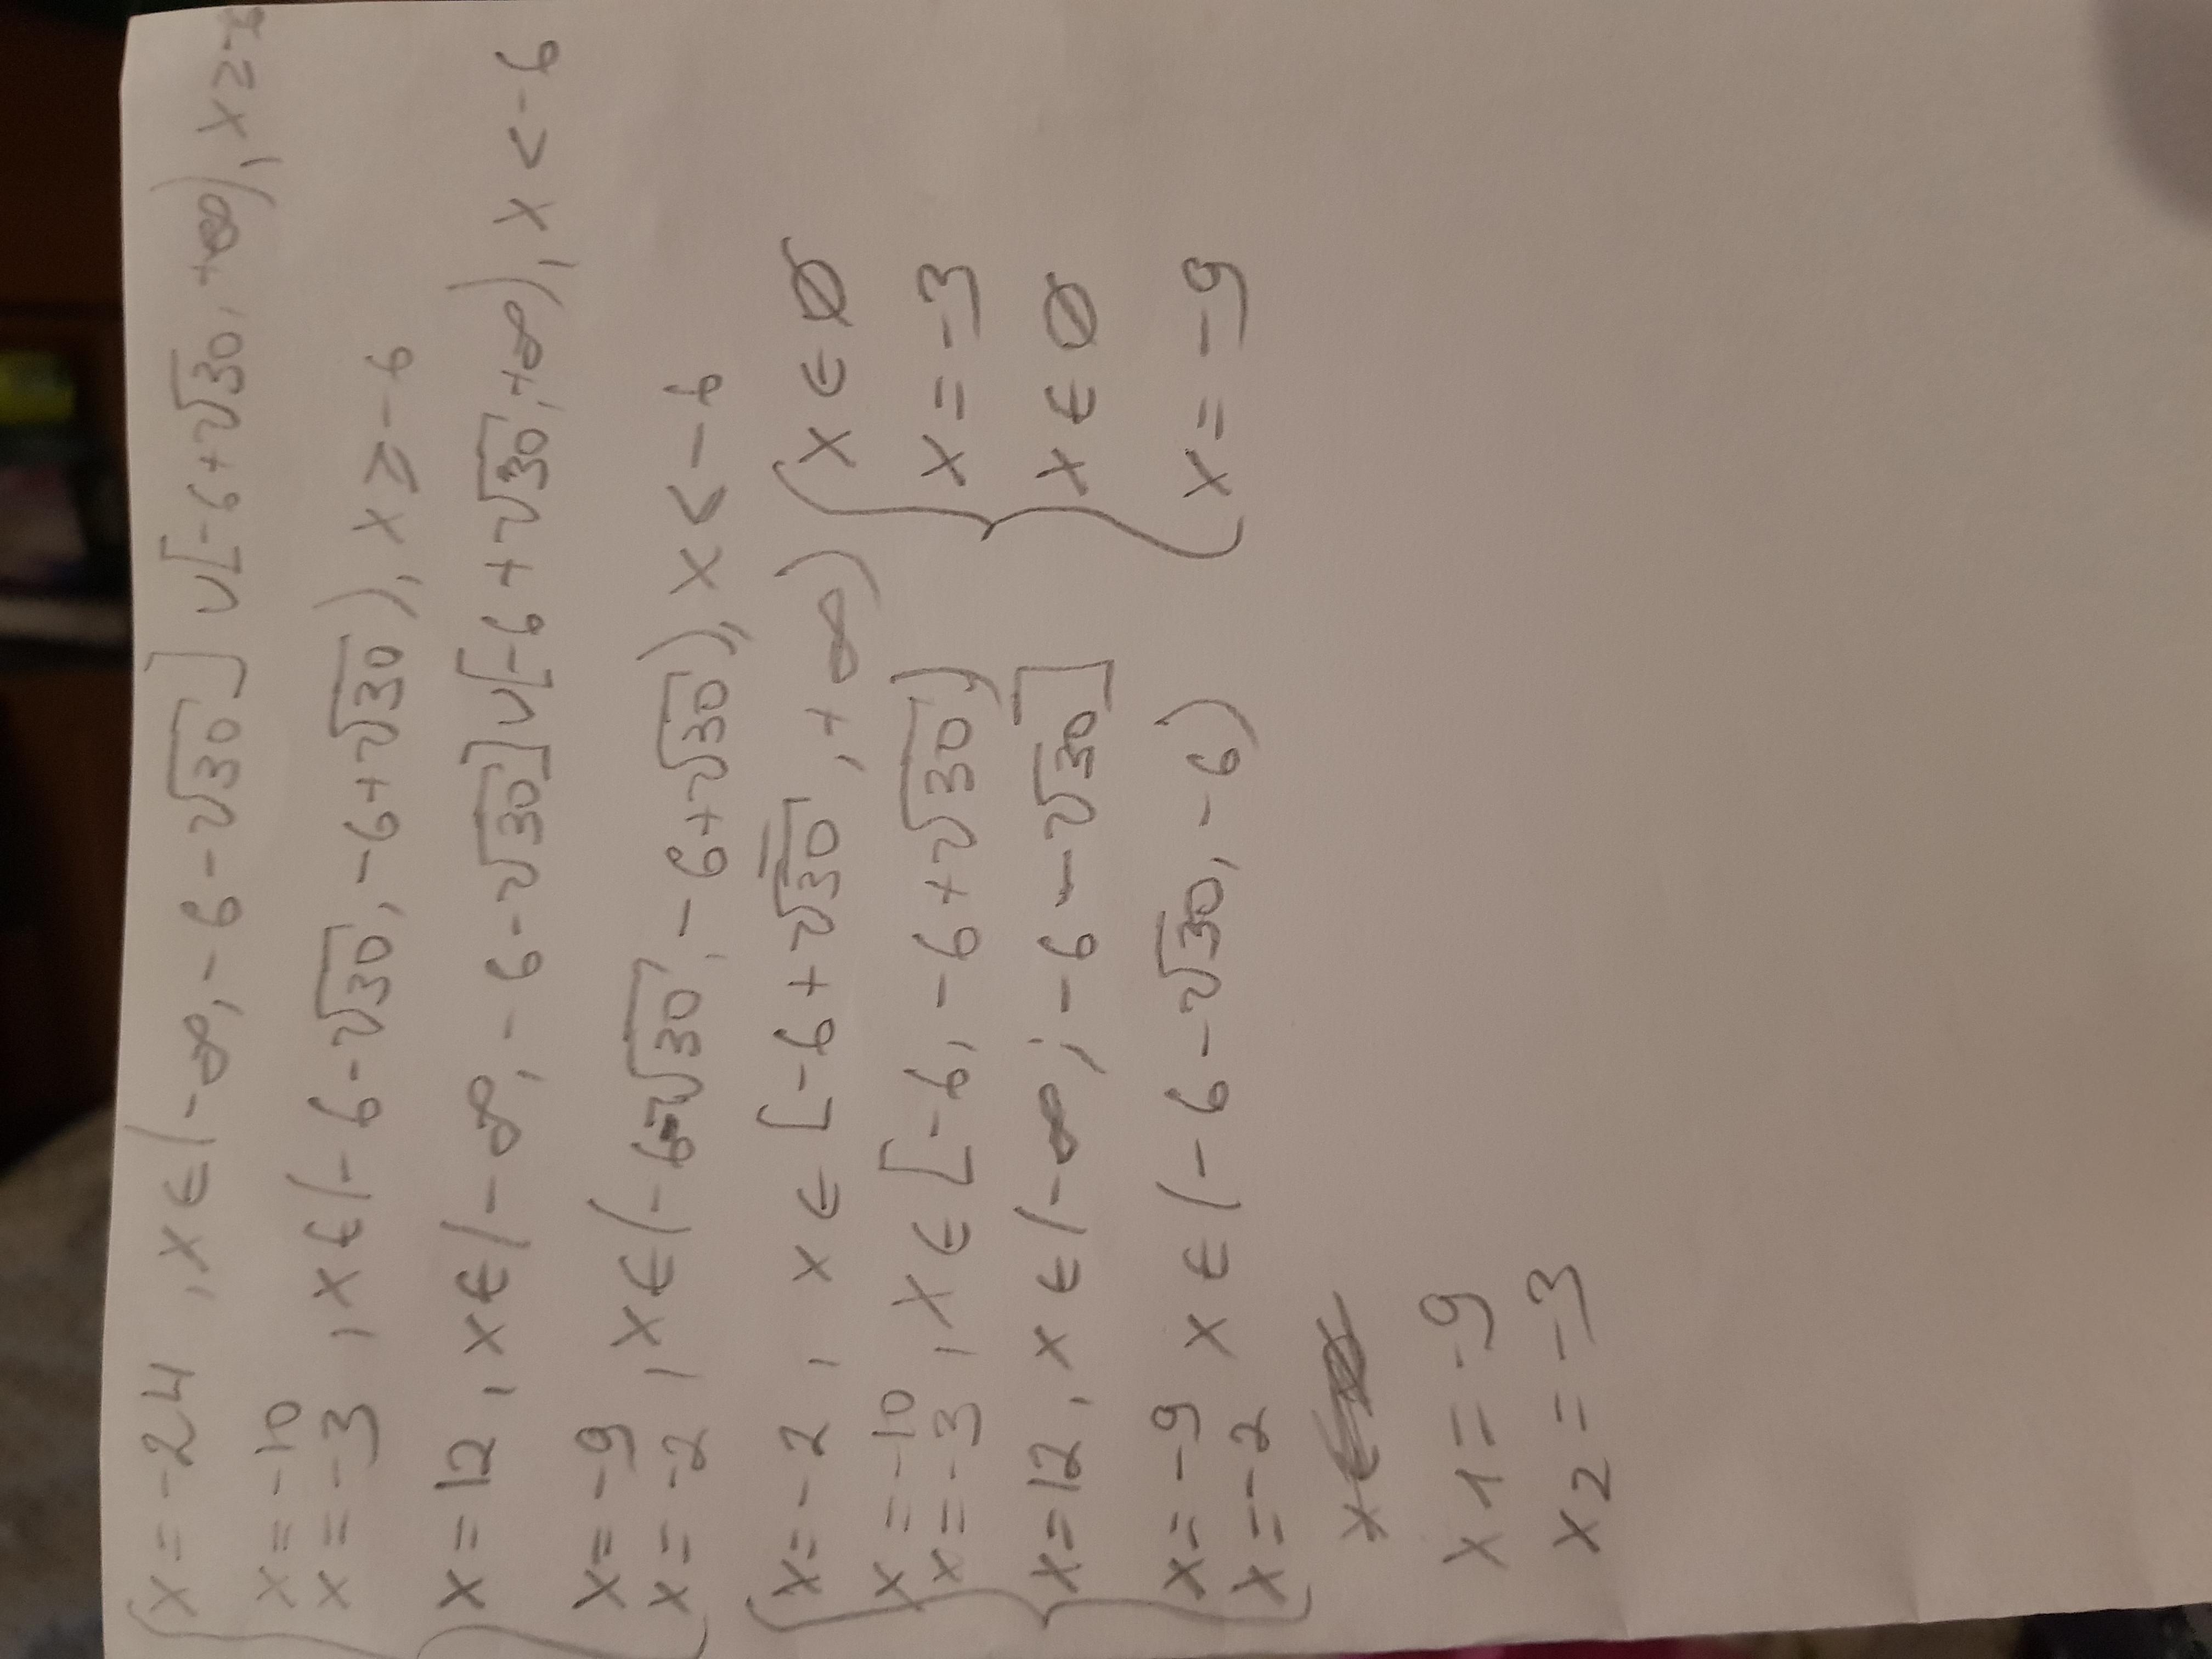 x = -24 , x ∈ (-∞, -6 - √30] ∪ [-6 + √30, +∞), x ≥
x = -10
x = -3 , x ∈ (-6 - √30, -6 + √30), x ≥ -6
x = 12, x ∈ (-∞, -6 - √30] ∪ [-6 + √30, +∞), x < -6
x = -9
x = -2 , x ∈ (-6 - √30, -6 + √30), x < -6
x = -2 , x ∈ [-6 + √30, +∞)
x ∈ ∅
x = -10
x = -3 , x ∈ [-6, -6 + √30)
x = -3
x = 12, x ∈ (-∞; -6 - √30]
x ∈ ∅
x = -9
x = -2
x ∈ (-6 - √30, -6)
x = -9
x1 = -9
x2 = -3